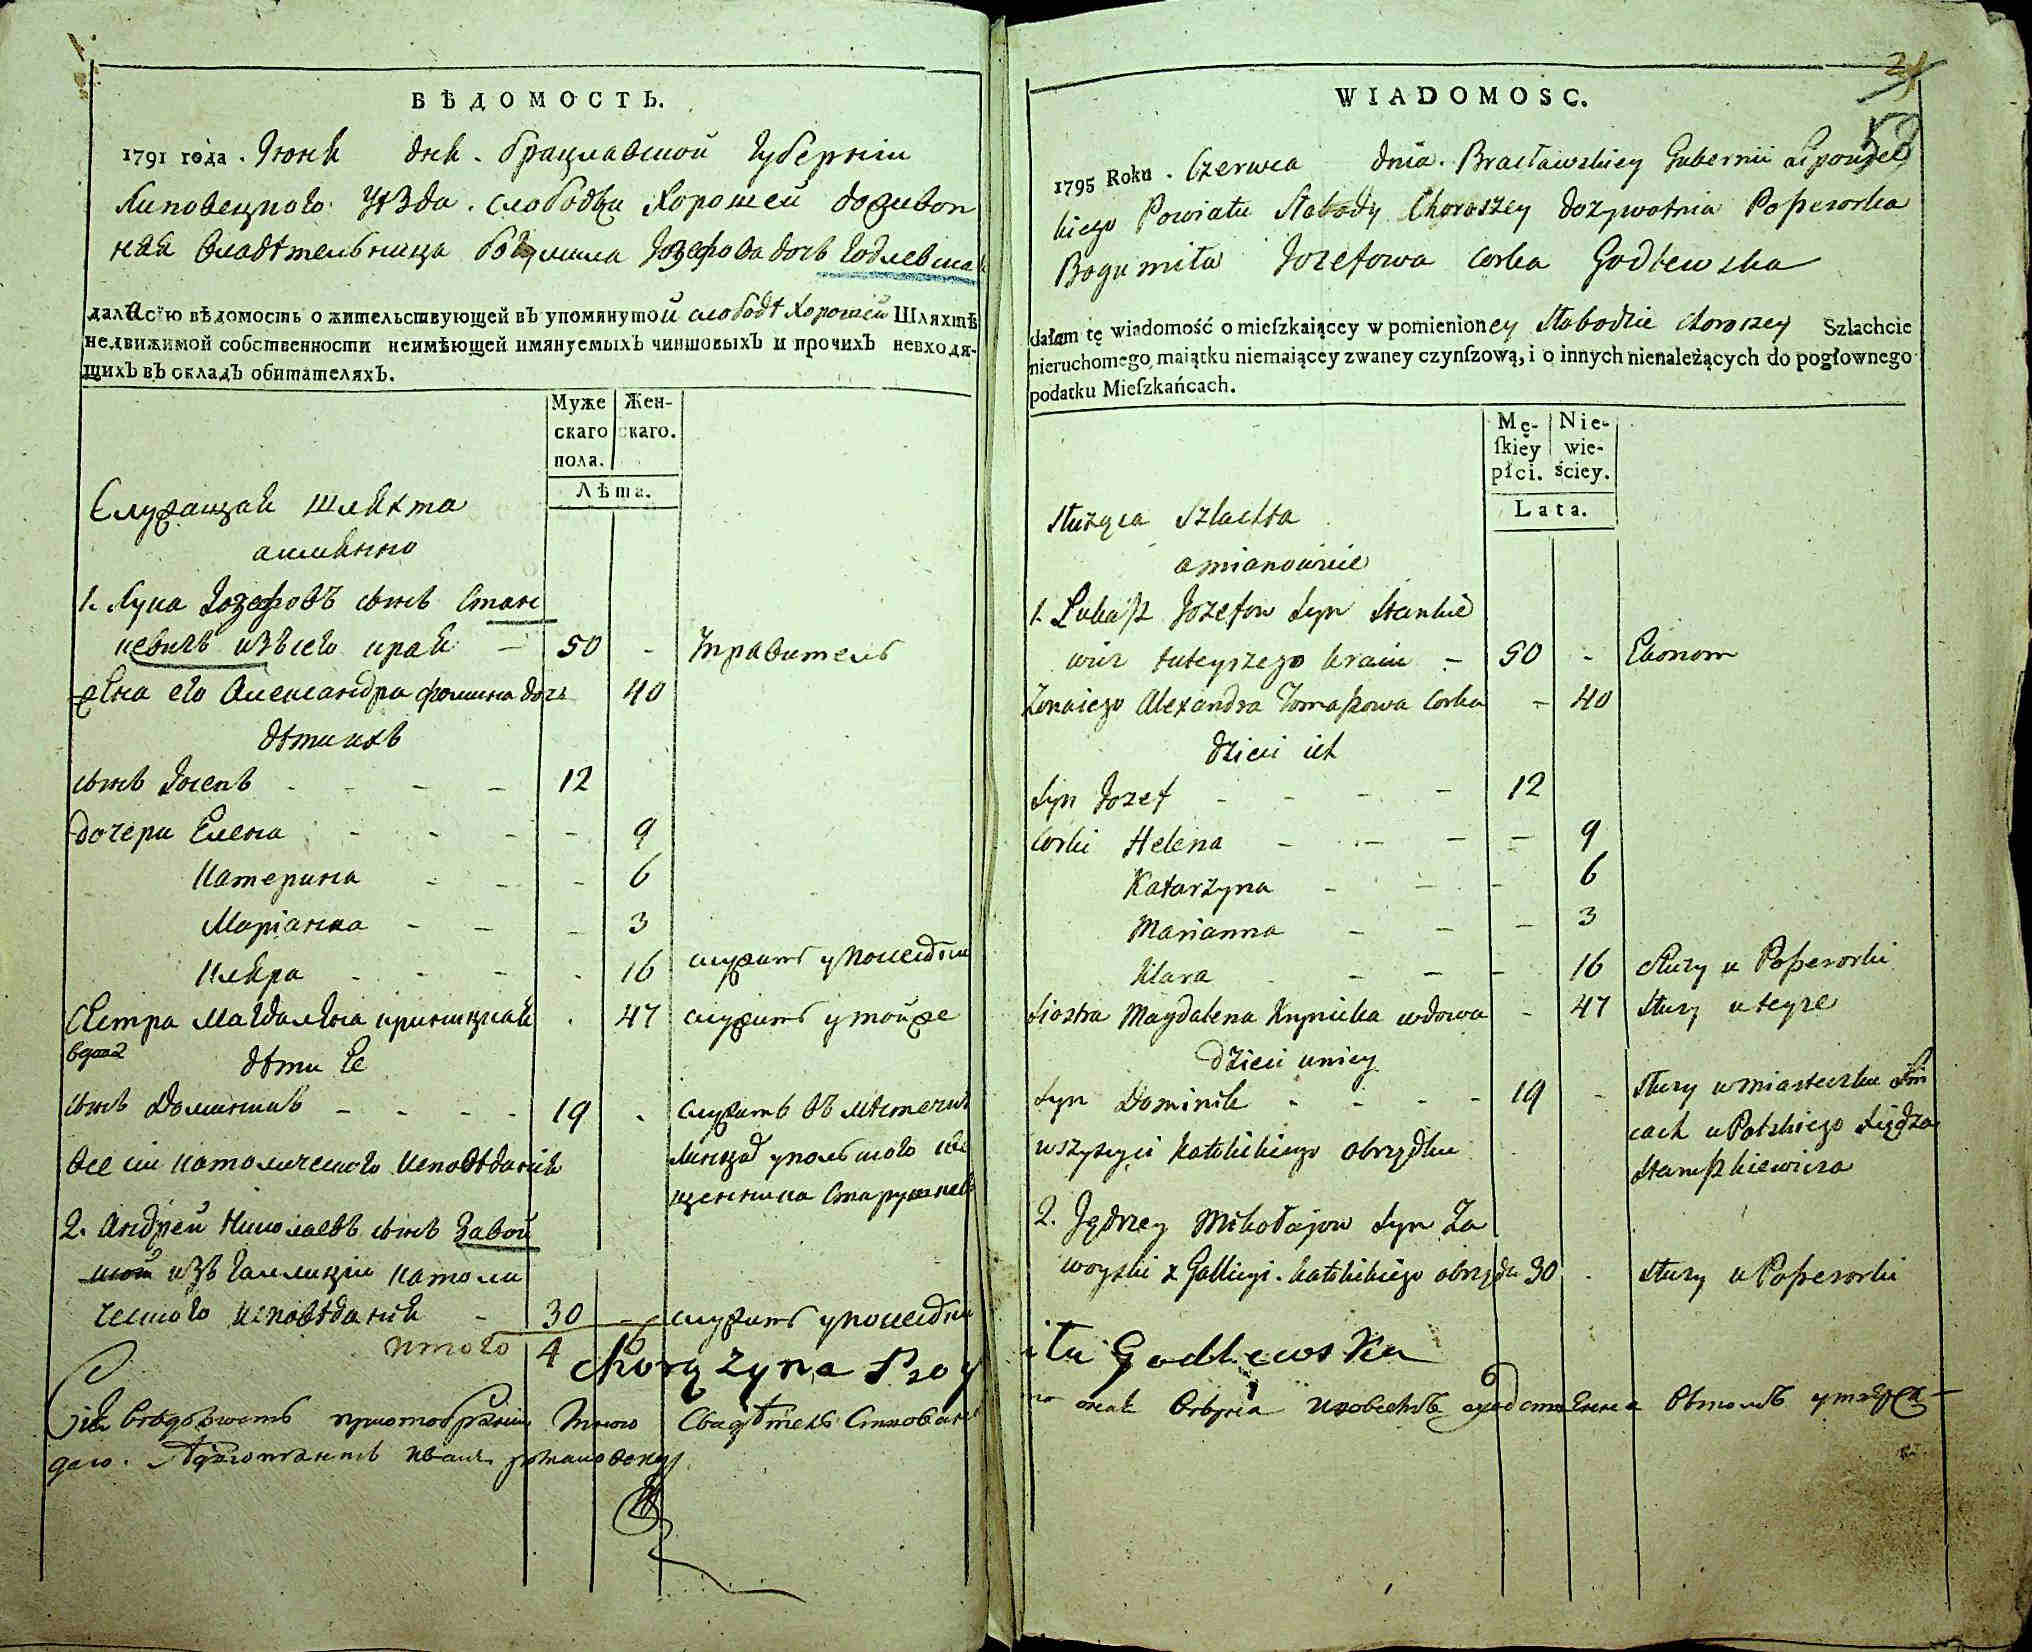 ВѢДОМОСТЬ.
1791 года. Июня дня. Брацлавской Губернїи
Липовецкого Уѣзда. слободы Хорошей доживот
ная владѣтельница Богумила Іозефова дочь Годлевска
дала сїю вѣдомость о жительствующей въ упомянутой слободѣ Хорошей Шляхтѣ
недвижимой собственности неимѣющей имянуемыхъ чиншовыхъ и прочихъ невходя-
щихъ въ окладъ обитателяхъ.
Муже Жен-
скаго скаго.
пола.
Лѣта.
Служащая шляхта
аимянно
1. Лука Іозефовъ сынъ Стан
кевичъ изъ сего края – 50 - Управитель
жена его Александра фомина дочь 40
дѣти ихъ
сынъ Іосепъ - - - - 12
дочери Елена - - - - 9
Катерина - - - 6
Маріанна - - - 3
Кляра - - - - 16 служитъ у посесорки
Сестра Магдалена Крыницкая . 47 служитъ у тойже
вдова
дѣти Ее
сынъ Доминикъ - - - - 19 - служитъ въ мѣстечкѣ
все сіи католическаго исповѣданія Линцахъ у польского
щенника
2. Андрей Николаевъ сынъ Завой
ской изъ Галлиціи католи
ческого исповѣданія - 30 - служитъ у посесорки
итого 4 16
Chorążyna
WIADOMOSC.
24
58
1795 Roku. Czerwca dnia. Bracławskiey Gubernii Lipowiec
kiego Powiatu Słabody Choroszey dożywotnia Poßesorka
Bogumiła Jozefowa Corka Godlewska
dałam tę wiadomość o mieſzkaiącey w pomienioney Słabodzie Choroszey Szlachcie
nieruchomego maiątku niemaiącey zwaney czynſzową, i o innych nienależących do pogłownego
podatku Mieſzkańcach.
Mę- Nie-
ſkiey wie-
płci. ściey.
Lata.
Służąca Szlachta
amianowicie
1. Lukaßz Jozefow Syn Stankie
wicz tuteyszego kraiu - 50 - Ekonom
Zonaiego Alexandra Tomaßowa Corka - 40
dzieci ich
Syn Jozef - - - - 12
Corki Helena - - - - 9
Katarzyna - - - 6
Marianna - - - 3
Klara - - - 16 Służy u Poßesorki
Siostra Magdalena Krynicka wdowa - 47 Służy u teyze
dzieci uniey
Syn Dominik - - - - 19 - Służy w miasteczku Lin
wszyscyi katolickiego obrządku cach u Polskiego Xiędza
2. Jędrzey Mikołajow Syn Za
woyski z Gallicyi. katolickiego obrządku 30 - Służy u Poßesorki
Godlewska